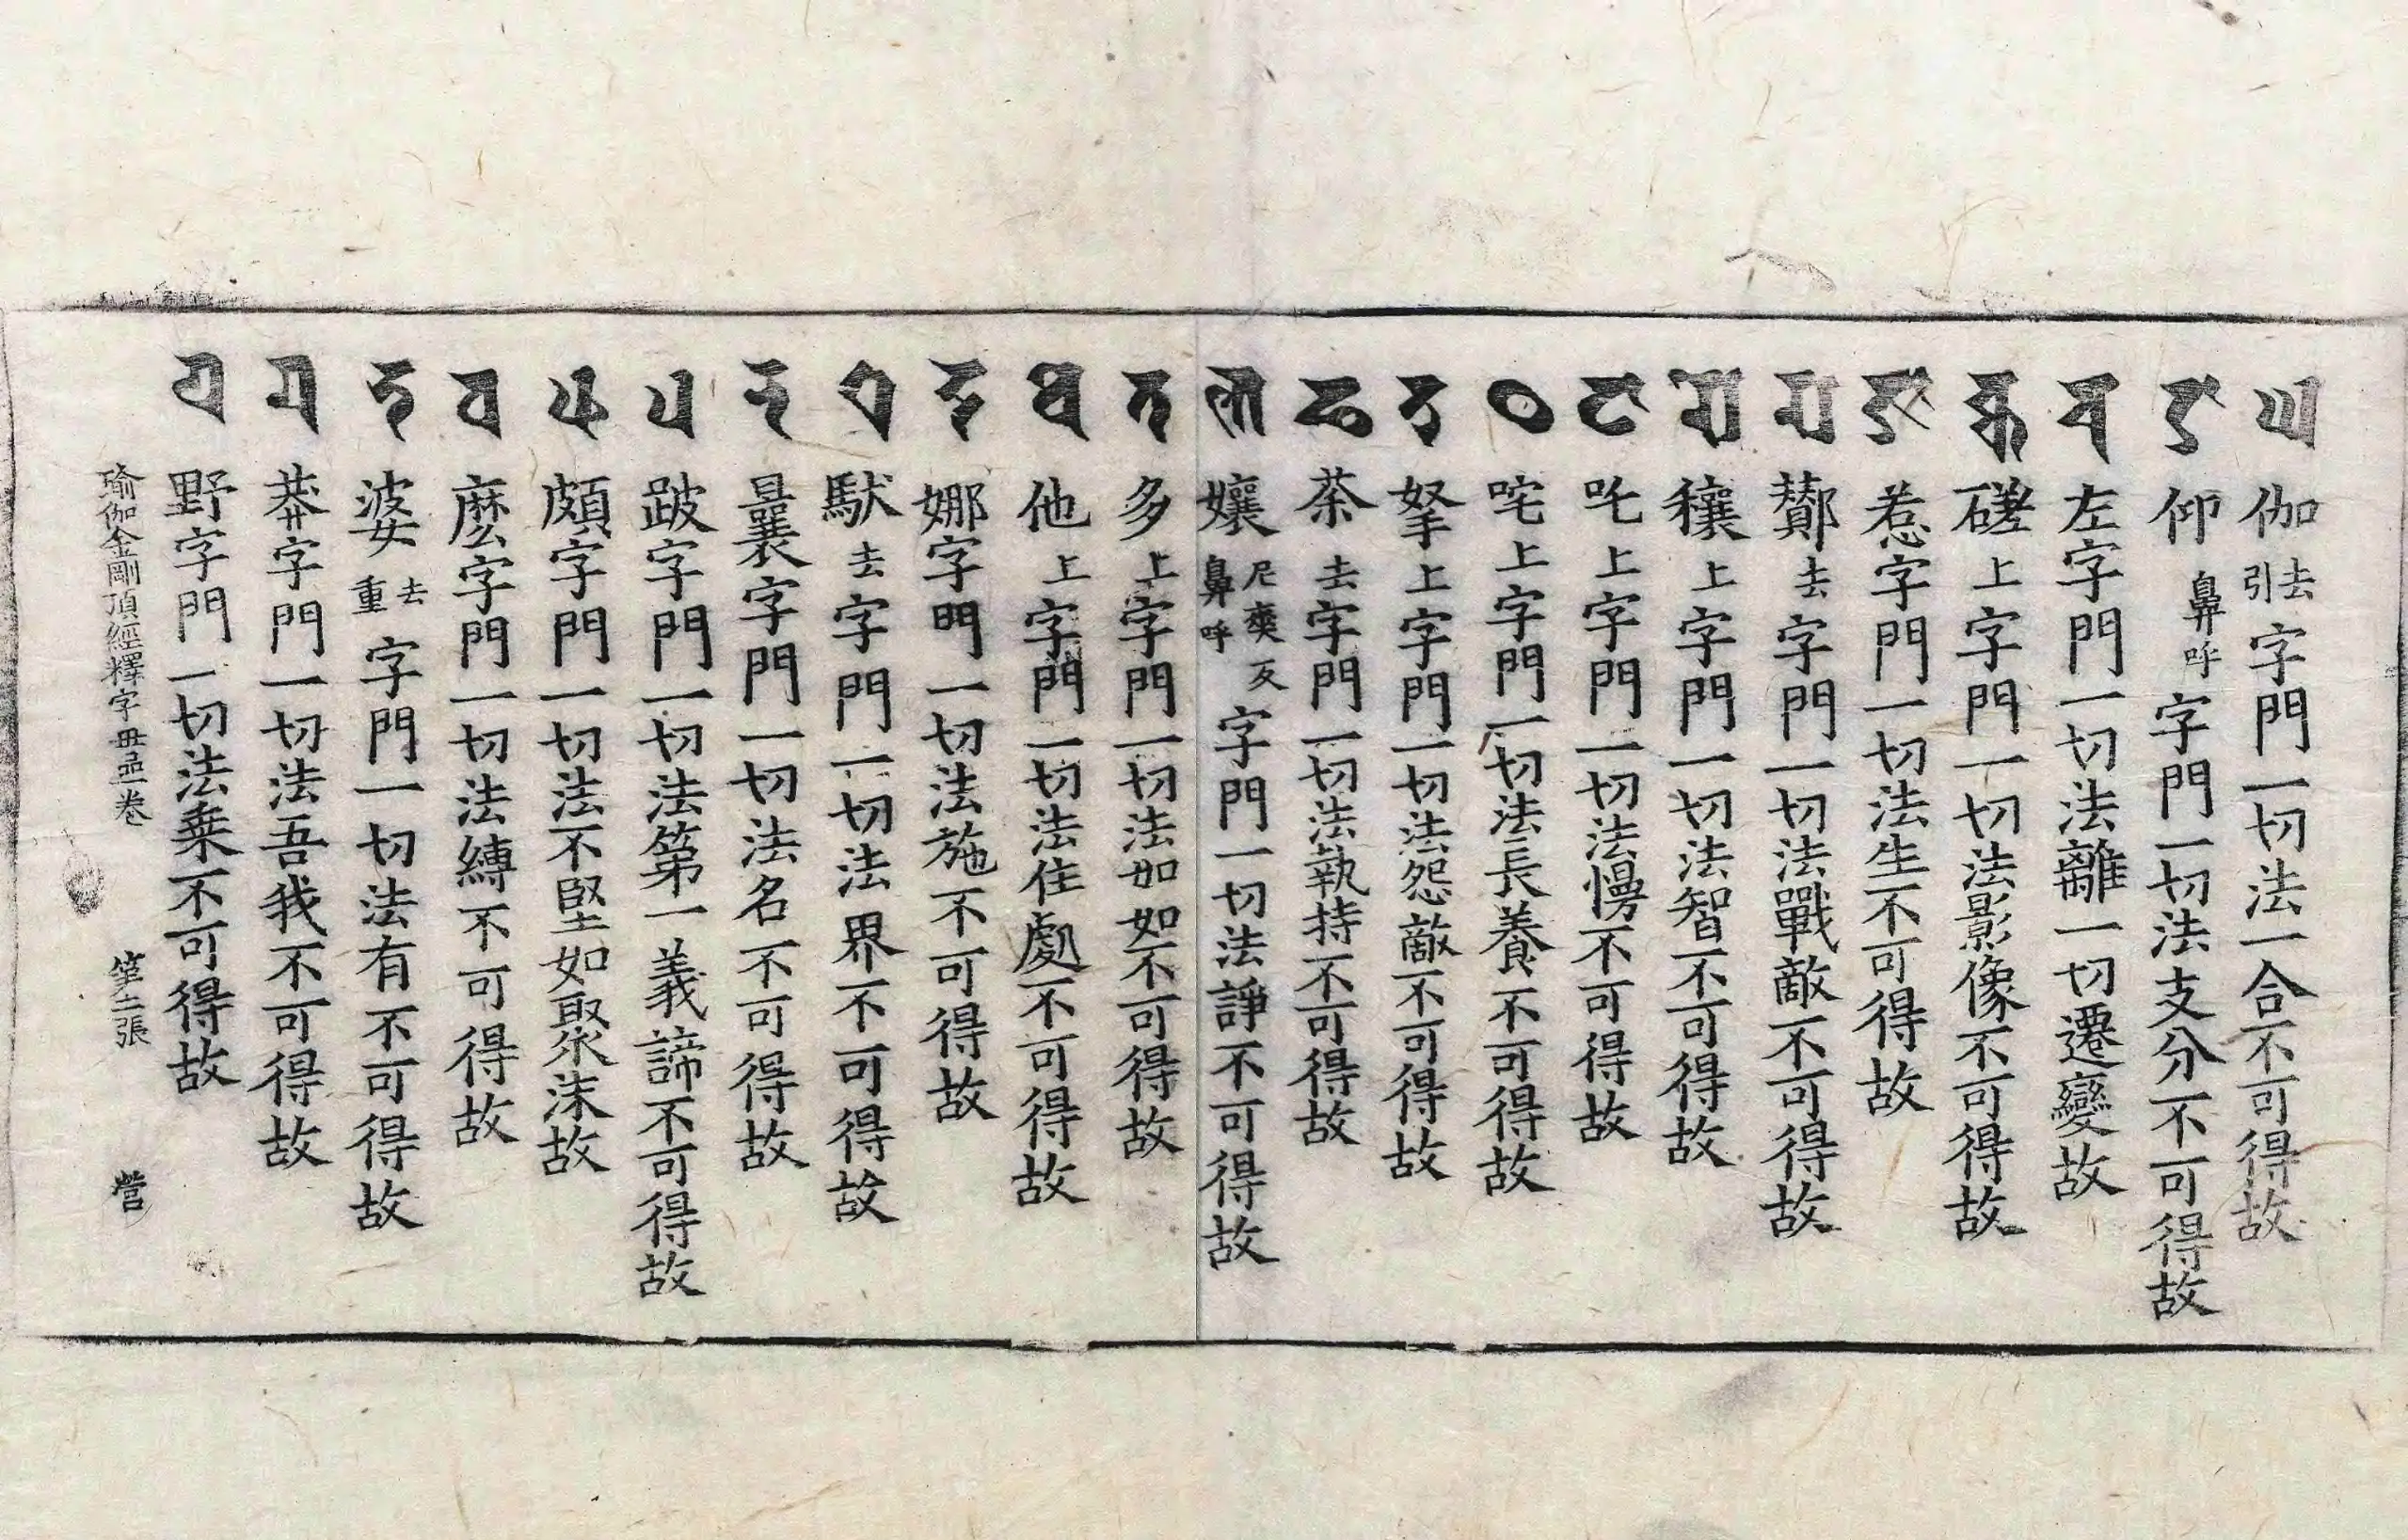 𑖑 伽去引字門一切法一合不可得故
𑖒 仰鼻呼字門一切法支分不可得故
𑖓 左字門一切法離一切遷變故
𑖔 磋上字門一切法影像不可得故
𑖕 惹字門一切法生不可得故
𑖖 酇去字門一切法戰敵不可得故
𑖗 穰上字門一切法智不可得故
𑖘 吒上字門一切法慢不可得故
𑖙 咤上字門一切法長養不可得故
𑖚 拏上字門一切法怨敵不可得故
𑖛 荼去字門一切法執持不可得故
𑖜 孃尼爽反鼻呼字門一切法諍不可得故
𑖝 多上字門一切法如如不可得故
𑖞 他上字門一切法住處不可得故
𑖟 娜字門一切法施不可得故
𑖠 馱去字門一切法界不可得故
𑖡 曩字門一切法名不可得故
𑖢 跛字門一切法第一義諦不可得故
𑖣 頗字門一切法不堅如聚沫故
𑖤 麽字門一切法縛不可得故
𑖥 婆去重字門一切法有不可得故
𑖦 莽字門一切法吾我不可得故
𑖧 野字門一切法乗不可得故
瑜伽金剛頂經釋字母品一卷 第二張 營